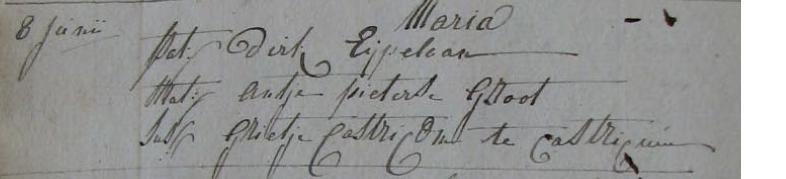 Maria
8 Junii Pat: Dirk Eijpelaan
Mat: Antje pieterse Groot
Susc: Grietje Castricum te Castricum